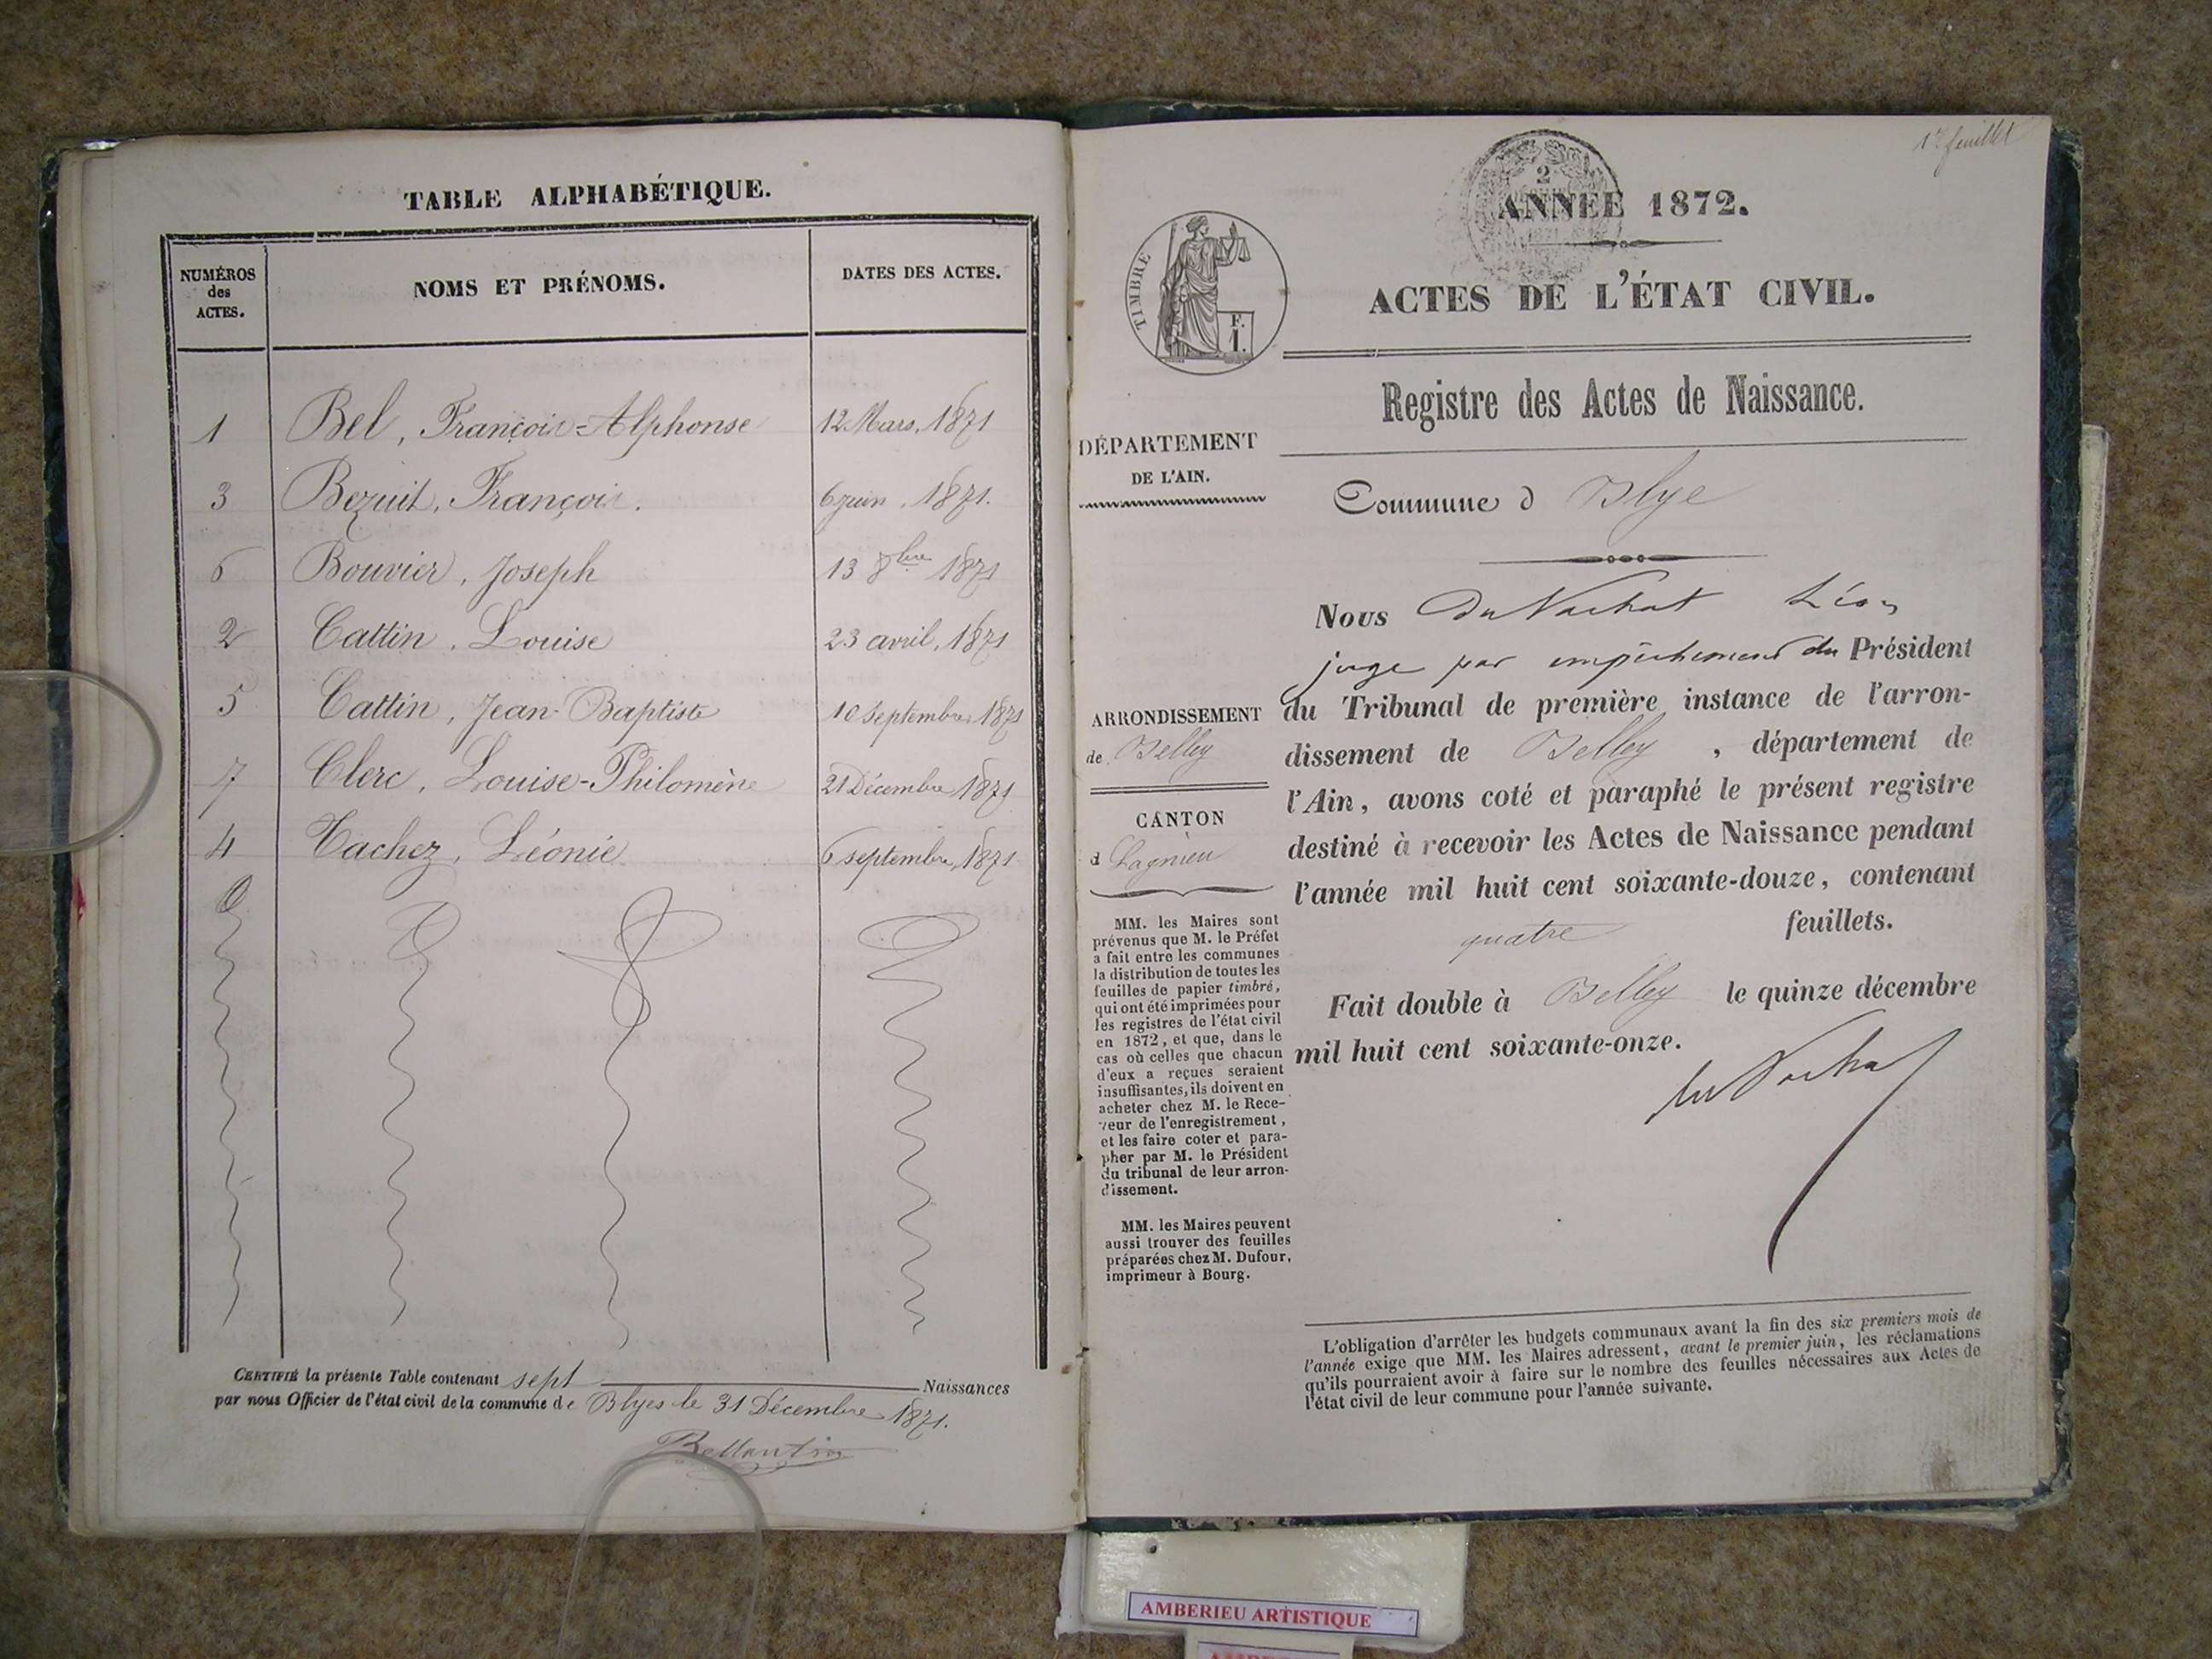 TABLE ALPHABÉTIQUE.
NUMÉROS des ACTES. NOMS ET PRÉNOMS. DATES DES ACTES.
1 Bel, François-Alphonse 12 Mars, 1871
3 Bezuit, François. 6 juin, 1871.
6 Bouvier, Joseph 13 8bre 1871
2 Cattin, Louise 23 avril, 1871
5 Cattin, Jean-Baptiste 10 Septembre, 1871
7 Clerc, Louise-Philomène 21 Décembre, 1871
4 Tachez, Léonie 6 septembre, 1871
CERTIFIÉ la présente Table contenant sept Naissances
par nous Officier de l'état civil de la commune de Blyes le 31 Décembre 1871.
1er feuillet
2
ANNÉE 1872.
TIMBRE
F.
1.
ACTES DE L'ÉTAT CIVIL.
Registre des Actes de Naissance.
DÉPARTEMENT
DE L'AIN.
Commune d Blye
Nous Du Nachat Léon
juge par empêchement du Président
du Tribunal de première instance de l'arron-
dissement de Belley, département de
l'Ain, avons coté et paraphé le présent registre
destiné à recevoir les Actes de Naissance pendant
l'année mil huit cent soixante-douze, contenant
quatre feuillets.
Fait double à Belley le quinze décembre
mil huit cent soixante-onze.
ARRONDISSEMENT
de Belley
CANTON
d Lagnieu
MM. les Maires sont
prévenus que M. le Préfet
a fait entre les communes
la distribution de toutes les
feuilles de papier timbré,
qui ont été imprimées pour
les registres de l'état civil
en 1872, et que, dans le
cas où celles que chacun
d'eux a reçues seraient
insuffisantes, ils doivent en
acheter chez M. le Rece-
veur de l'enregistrement,
et les faire coter et para-
pher par M. le Président
du tribunal de leur arron-
dissement.
MM. les Maires peuvent
aussi trouver des feuilles
préparées chez M. Dufour,
imprimeur à Bourg.
L'obligation d'arrêter les budgets communaux avant la fin des six premiers mois de
l'année exige que MM. les Maires adressent, avant le premier juin, les réclamations
qu'ils pourraient avoir à faire sur le nombre des feuilles nécessaires aux Actes de
l'état civil de leur commune pour l'année suivante.
AMBERIEU ARTISTIQUE